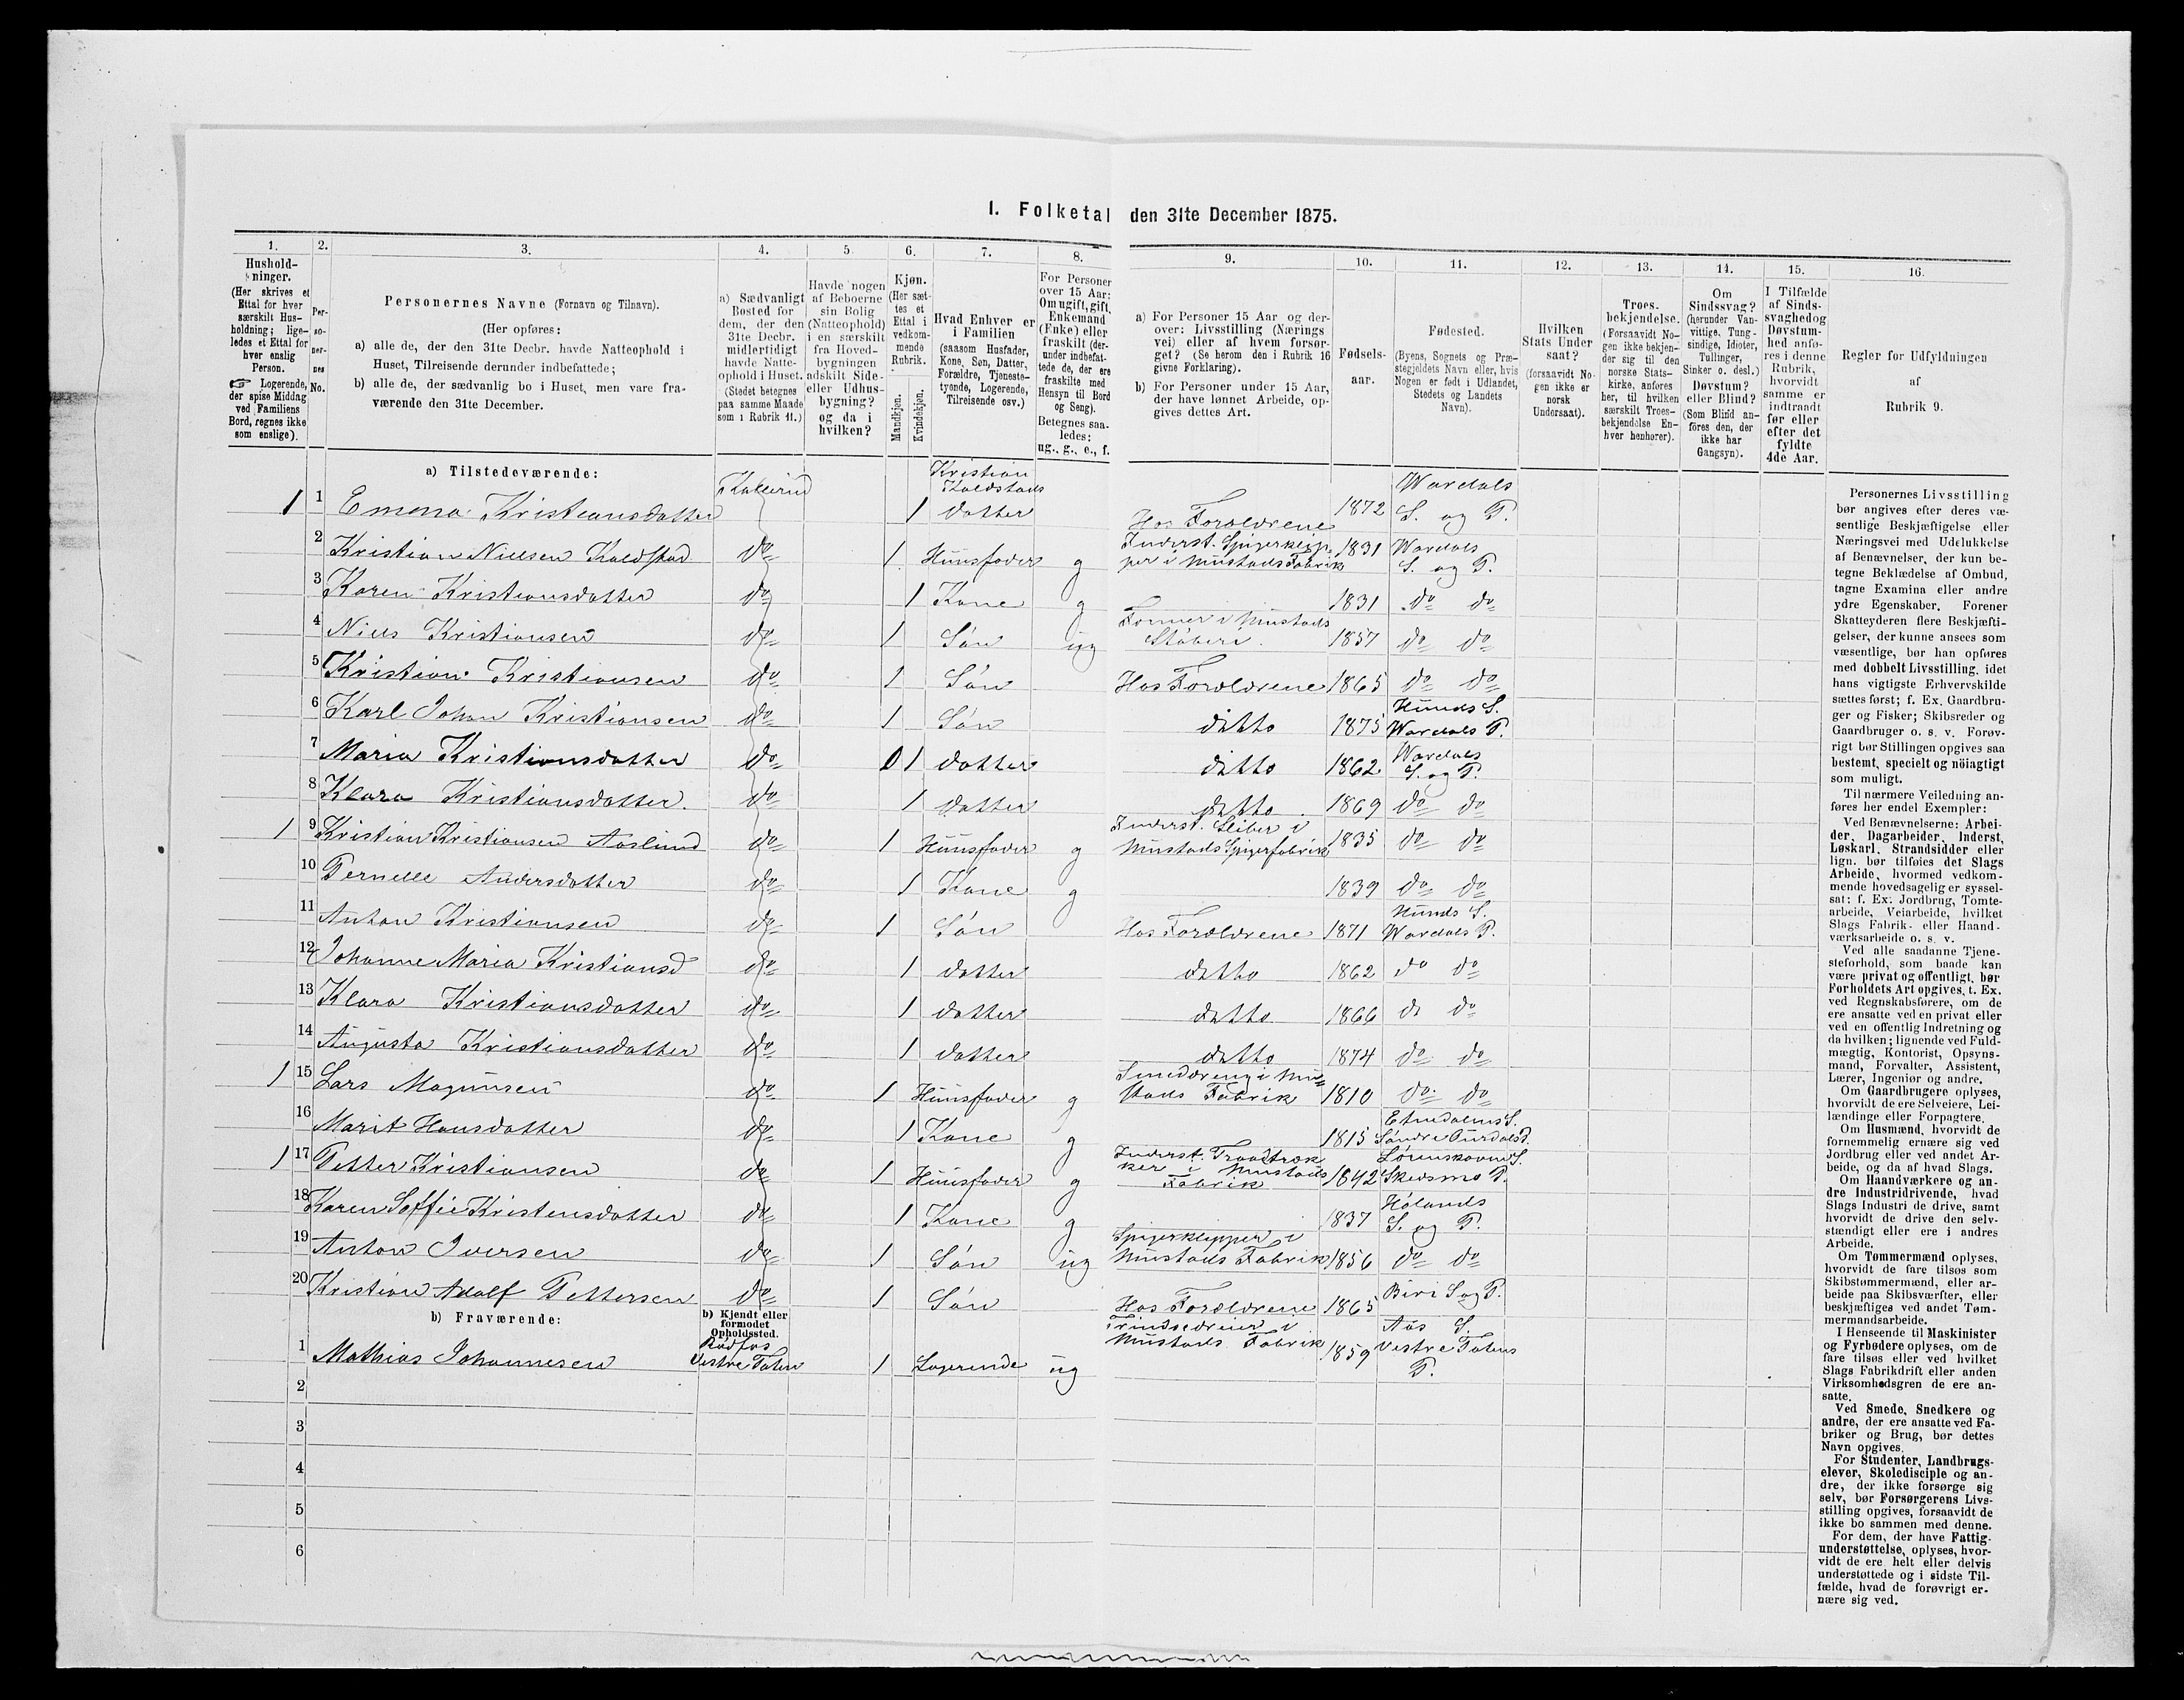 I. Folketal den 31te December 1875.
1. 2. 3. 4. 5 6. 7. 8. 9. 10. 11. 12. 13. 14. 15. 16.
Hushold-
ninger.
(Her skrives et
Ettal for hver
særskilt Hus-
holdning; lige-
ledes et Ettal for
hver enslig
Person.
☞ Logerende,
der spise Middag
ved Familiens
Bord, regnes ikke
som enslige).
Per-
so-
ner-
nes
No.
Personernes Navne (Fornavn og Tilnavn).
(Her opføres:
a) alle de, der den 31te Decbr. havde Natteophold i
Huset, Tilreisende derunder indbefattede;
b) alle de, der sædvanlig bo i Huset, men vare fra-
værende den 31te December.
a) Sædvanligt
Bosted for
dem, der den
31te Decbr.
midlertidigt
havde Natte-
ophold i Huset.
(Stedet betegnes
paa samme Maade
som i Rubrik 11.)
Havde nogen
af Beboerne
sin Bolig
(Natteophold)
i en særskilt
fra Hoved-
bygningen
adskilt Side-
eller Udhus-
bygning?
og da i
hvilken?
Kjøn.
(Her sæt-
tes et
Ettal i
vedkom-
mende
Rubrik.
Mandkjøn.
Kvindekjøn.
Hvad Enhver er
i Familien
(saasom Husfader,
Kone, Søn, Datter,
Forældre, Tjeneste-
tyende, Logerende,
Tilreisende osv.)
For Personer
over 15 Aar:
Om ugift, gift,
Enkemand
(Enke) eller
fraskilt (der-
under indbefat-
tede de, der ere
fraskilte med
Hensyn til Bord
og Seng).
Betegnes saa-
ledes:
ug., g., e., f.
a) For Personer 15 Aar og der-
over: Livsstilling (Nærings
vei) eller af hvem forsør-
get? (Se herom den i Rubrik 16
givne Forklaring).
b) For Personer under 15 Aar,
der have lønnet Arbeide, op-
gives dettes Art.
Fødsels-
aar.
Fødested.
(Byens, Sognets og Præ-
stegjeldets Navn eller, hvis
Nogen er født i Udlandet,
Stedets og Landets
Navn).
Hvilken
Stats Under
saat?
(forsaavidt No-
gen ikke er
norsk
Undersaat).
Troes-
bekjendelse.
(Forsaavidt No-
gen ikke bekjen-
der sig til den
norske Stats-
kirke, anføres
her, til hvilken
særskilt Troes-
bekjendelse En-
hver henhører).
Om
Sindssvag?
(herunder Van-
vittige, Tung-
sindige, Idioter,
Tullinger,
Sinker o. desl.)
Døvstum?
eller Blind?
(Som Blind an-
føres den, der
ikke har
Gangsyn).
I Tilfælde
af Sinds-
svaghedog
Døvstum-
hed anfø-
res i denne
Rubrik,
hvorvidt
samme er
indtraadt
før eller
efter det
fyldte
4de Aar.
Regler for Udfyldningen
af
Rubrik 9.
a) Tilstedeværende:
1 1 Emma Kristiansdatter 1 Kristian Koldstads datter Hos Forældrene 1872 Wardals S. og P.
2 Kristian Nielsen Koldstad do 1 Huusfader g Inderst. Spigerklipper i Mustads Fabrik 1831 Wardals S. og P.
3 Karen Kristiansdatter do 1 Kone g 1831 do do
4 Niels Kristiansen do 1 Søn ug Former i Mustads Støberi 1857 do do
5 Kristian Kristiansen do 1 Søn Hos Forældrene 1865 do do
6 Karl Johan Kristiansen do 1 Søn ditto 1875 Hunds S. Wardals P.
7 Maria Kristiansdatter do 1 datter ditto 1862 Wardals S. og P.
8 Klara Kristiansdatter do 1 datter ditto 1869 do do
1 9 Kristian Kristiansen Aaslund do 1 Huusfader g Inderst. Sliber i Mustads Spigerfabrik 1835 do do
10 Pernelle Andersdatter do 1 Kone g 1839 do do
11 Anton Kristiansen do 1 Søn Hos Forældrene 1871 Hunds S. Wardals P.
12 Johanne Maria Kristiansd do 1 datter ditto 1862 do do
13 Klara Kristiansdatter do 1 datter ditto 1866 do do
14 Augusta Kristiansdatter do 1 datter ditto 1874 do do
1 15 Lars Magnusen do 1 Huusfader g Smeddreng i Mustads Fabrik 1810 do do
16 Marit Hansdatter do 1 Kone g 1815 Etnedalens S. Søndre Aurdals P.
1 17 Petter Kristiansen do 1 Huusfader g Inderst. Traadtrækker i Mustads Fabrik 1842 Lørenskovens S. Skedsmo P.
18 Karen Soffie Kristensdatter do 1 Kone g 1837 Hølands S. og P.
19 Anton Iversen do 1 Søn ug Spigerklipper i Mustads Fabrik 1856 do do
20 Kristian Adolf Pettersen do 1 Søn Hos Forældrene 1865 Biri S og P.
b) Fraværende:
b) Kjendt eller
formodet
Opholdssted.
1 Mathias Johannesen Vestre Toten 1 Logerende ug i Mustads Fabrik 1859 Aas S. Vestre Totens P.
2
3
4
5
6
Personernes Livsstilling
bør angives efter deres væ-
sentlige Beskjæftigelse eller
Næringsvei med Udelukkelse
af Benævnelser, der kun be-
tegne Beklædelse af Ombud,
tagne Examina eller andre
ydre Egenskaber. Forener
Skatteyderen flere Beskjæfti-
gelser, der kunne ansees som
væsentlige, bør han opføres
med dobbelt Livsstilling, idet
hans vigtigste Erhvervskilde
sættes først; f. Ex. Gaardbru-
ger og Fisker; Skibsreder og
Gaardbruger o. s. v. Forøv-
rigt bør Stillingen opgives saa
bestemt, specielt og nöiagtigt
som muligt.
Til nærmere Veiledning an-
føres her endel Exempler:
Ved Benævnelserne: Arbei-
der, Dagarbeider, Inderst,
Løskarl, Strandsidder eller
lign. bør tilføies det Slags
Arbeide, hvormed vedkom-
mende hovedsagelig er syssel-
sat: f. Ex. Jordbrug, Tomte-
arbeide, Veiarbeide, hvilket
Slags Fabrik- eller Haand-
værksarbeide o. s. v.
Ved alle saadanne Tjene-
steforhold, som baade kan
være privat og offentligt, bør
Forholdets Art opgives, t. Ex.
ved Regnskabsførere, om de
ere ansatte ved en privat eller
ved en offentlig Indretning og
da hvilken; lignende ved Fuld-
mægtig, Kontorist, Opsyns-
mand, Forvalter, Assistent,
Lærer, Ingeniør og andre.
Om Gaardbrugere oplyses,
hvorvidt de ere Selveiere, Lei-
lændinge eller Forpagtere.
Om Husmænd, hvorvidt de
fornemmelig ernære sig ved
Jordbrug eller ved andet Ar-
beide, og da af hvad Slags.
Om Haandværkere og an-
dre Industridrivende, hvad
Slags Industri de drive, samt
hvorvidt de drive den selv-
stændigt eller ere i andres
Arbeide.
Om Tømmermænd oplyses,
hvorvidt de fare tilsøs som
Skibstømmermænd, eller ar-
beide paa Skibsværfter, eller
beskjæftiges ved andet Tøm-
mermandsarbeide.
I Henseende til Maskinister
og Fyrbødere oplyses, om de
fare tilsøs eller ved hvilket
Slags Fabrikdrift eller anden
Virksomhedsgren de ere an-
satte.
Ved Smede, Snedkere og
andre, der ere ansatte ved Fa-
briker og Brug, bør dettes
Navn opgives.
For Studenter, Landbrugs-
elever, Skoledisciple og an-
dre, der ikke forsørge sig
selv, bør Forsørgerens Livs-
stilling opgives, forsaavidt de
ikke bo sammen med denne.
For dem, der have Fattig-
understøttelse, oplyses, hvor-
vidt de ere helt eller delvis
understøttede og i sidste Til-
fælde, hvad de forøvrigt er-
nære sig ved.